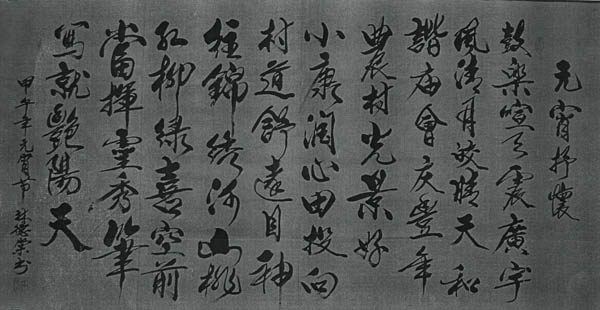 元宵抒懷
鼓樂喧天震廣宇
風清月皎晴天和
諧庙會庆豐年
農村光景好
小康润心田投向
村道舒遠目神
往錦绣河山桃
红柳绿喜空前
當揮靈秀筆
寫就艷陽天
甲午年元宵节 德 书